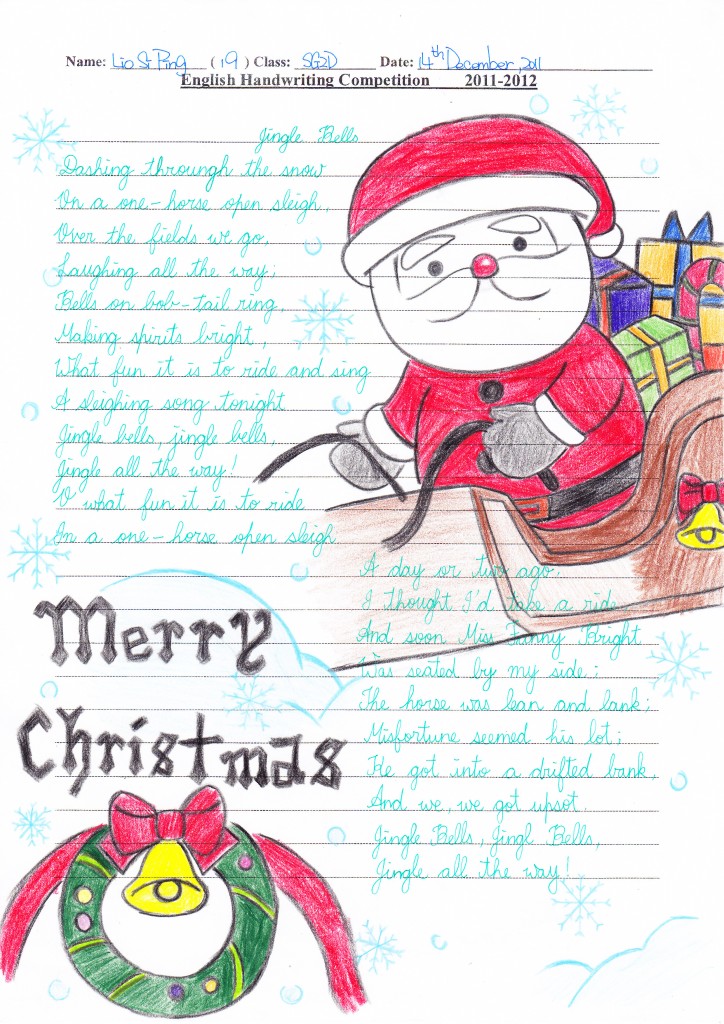 Name: Lio Si Ping (19) Class: SG2D Date: 14th December, 2011
English Handwriting Competition 2011-2012
Jingle Bells
Dashing throungh the snow
On a one-horse open sleigh,
Over the fields we go,
Laughing all the way;
Bells on bob-tail ring,
Making spirits bright,
What fun it is to ride and sing
A sleighing song tonight
Jingle bells, jingle bells,
Jingle all the way!
O what fun it is to ride
In a one-horse open sleigh
A day or two ago,
I thought I'd take a ride
And soon Miss Fanny Bright
Was seated by my side;
The horse was lean and lank;
Misfortune seemed his lot;
He got into a drifted bank,
And we, we got upsot.
Jingle Bells, Jingl Bells,
Jingle all the way!
Merry
Christmas